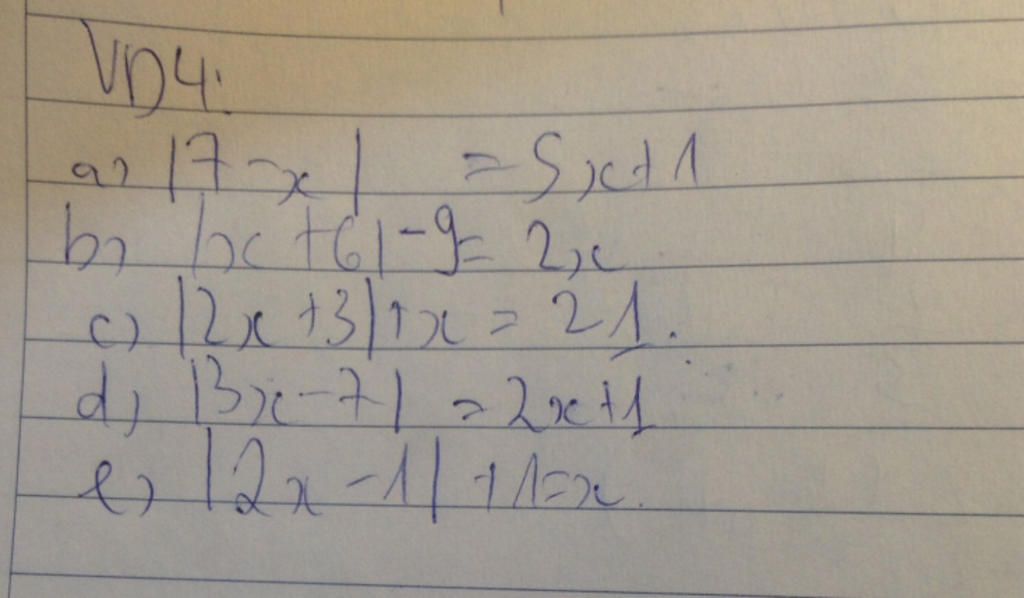 VD4:
a) |7-x| = 5x+1
b) |x+6|-9= 2x
c) |2x+3|+x = 21.
d) |3x-7| = 2x+1
e) |2x-1|+1=x.